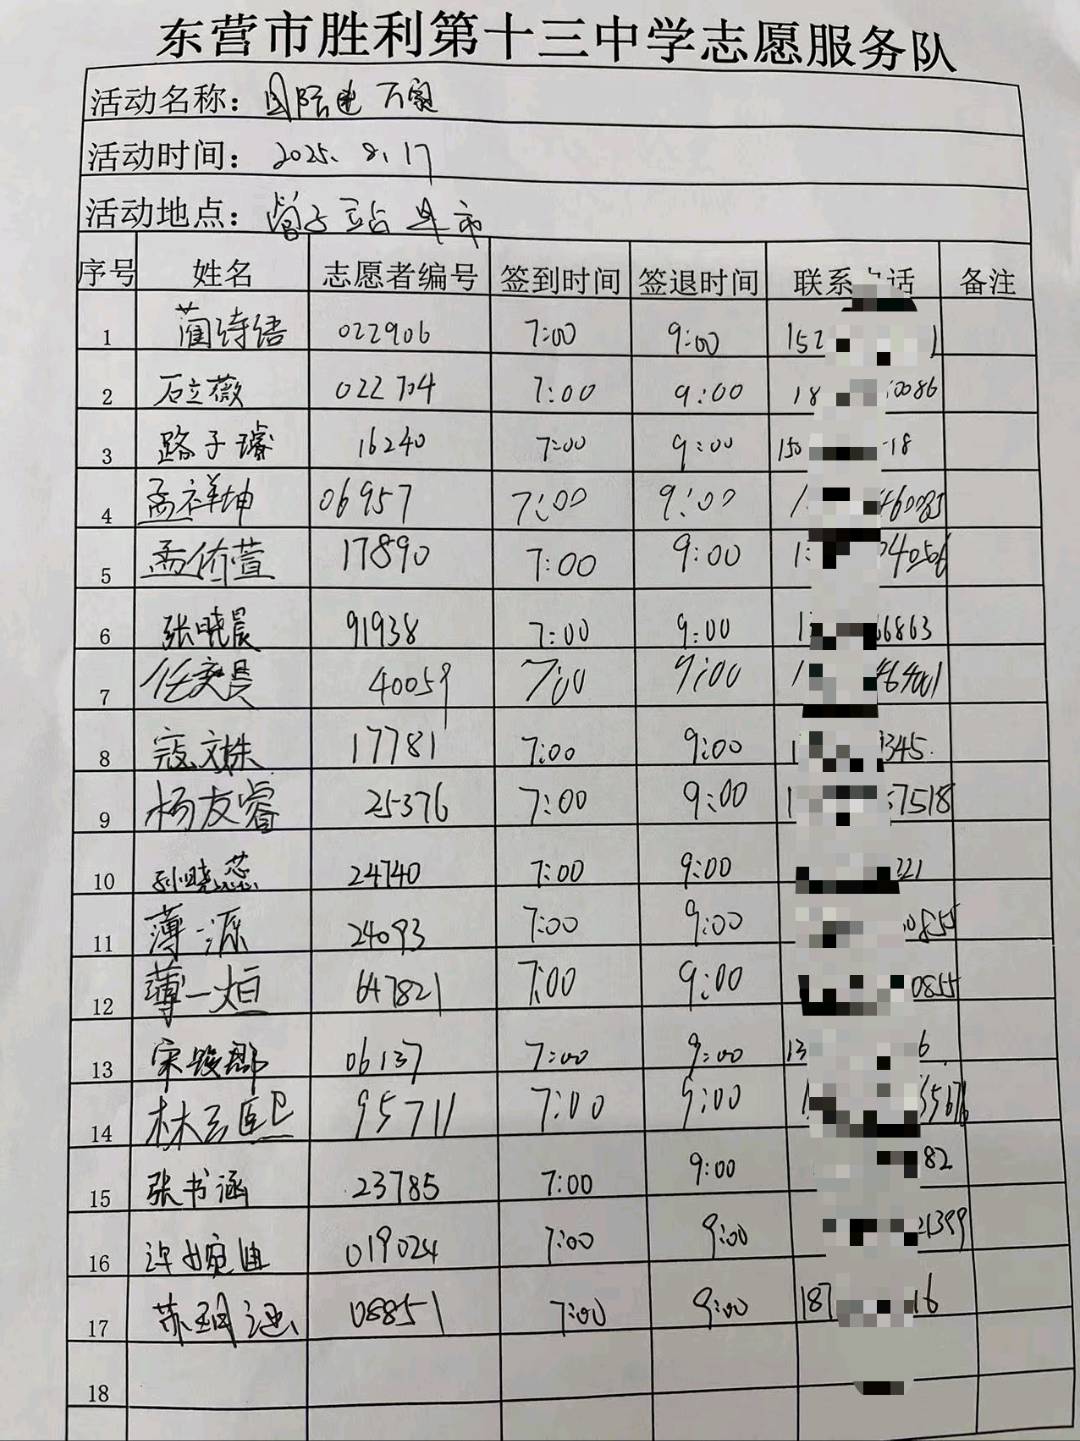 东营市胜利第十三中学志愿服务队
活动名称：国际进万家
活动时间：2025.8.17
活动地点：
序号 姓名 志愿者编号 签到时间 签退时间 联系 话 备注
1 蔺诗语 022906 7:00 9:00 152 1
2 石立薇 022704 7:00 9:00 18 0086
3 路子璿 16240 7:00 9:00 150 18
4 孟祥坤 06957 7:00 9:00 1
5 孟侨萱 17890 7:00 9:00 1
6 张晓晨 91938 7:00 9:00 1 6863
7 任奕晨 40059 7:00 9:00 1 464001
8 寇文姝 17781 7:00 9:00 1 345
9 杨友睿 25376 7:00 9:00 1 7518
10 孙晓蕊 24740 7:00 9:00 221
11 薄一源 24093 7:00 9:00 0855
12 薄一烜 647821 7:00 9:00 0855
13 宋 郡 06137 7:00 9:00 13 6
14 林 95711 7:00 9:00 1 5676
15 张书涵 23785 7:00 9:00 82
16 许婉迪 019024 7:00 9:00 21399
17 苏 涵 08851 7:00 9:00 187 16
18